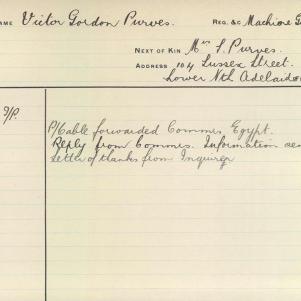 AME Victor Gordon Purves. REG. &C Machine G
NEXT OF KIN Mrs S. Purves.
ADDRESS 104 Sussex Street.
Lower Nth Adelaide
P/Cable forwarded Commrs Egypt.
Reply from Commrs. Information sen
Letter of thanks from Inquirer